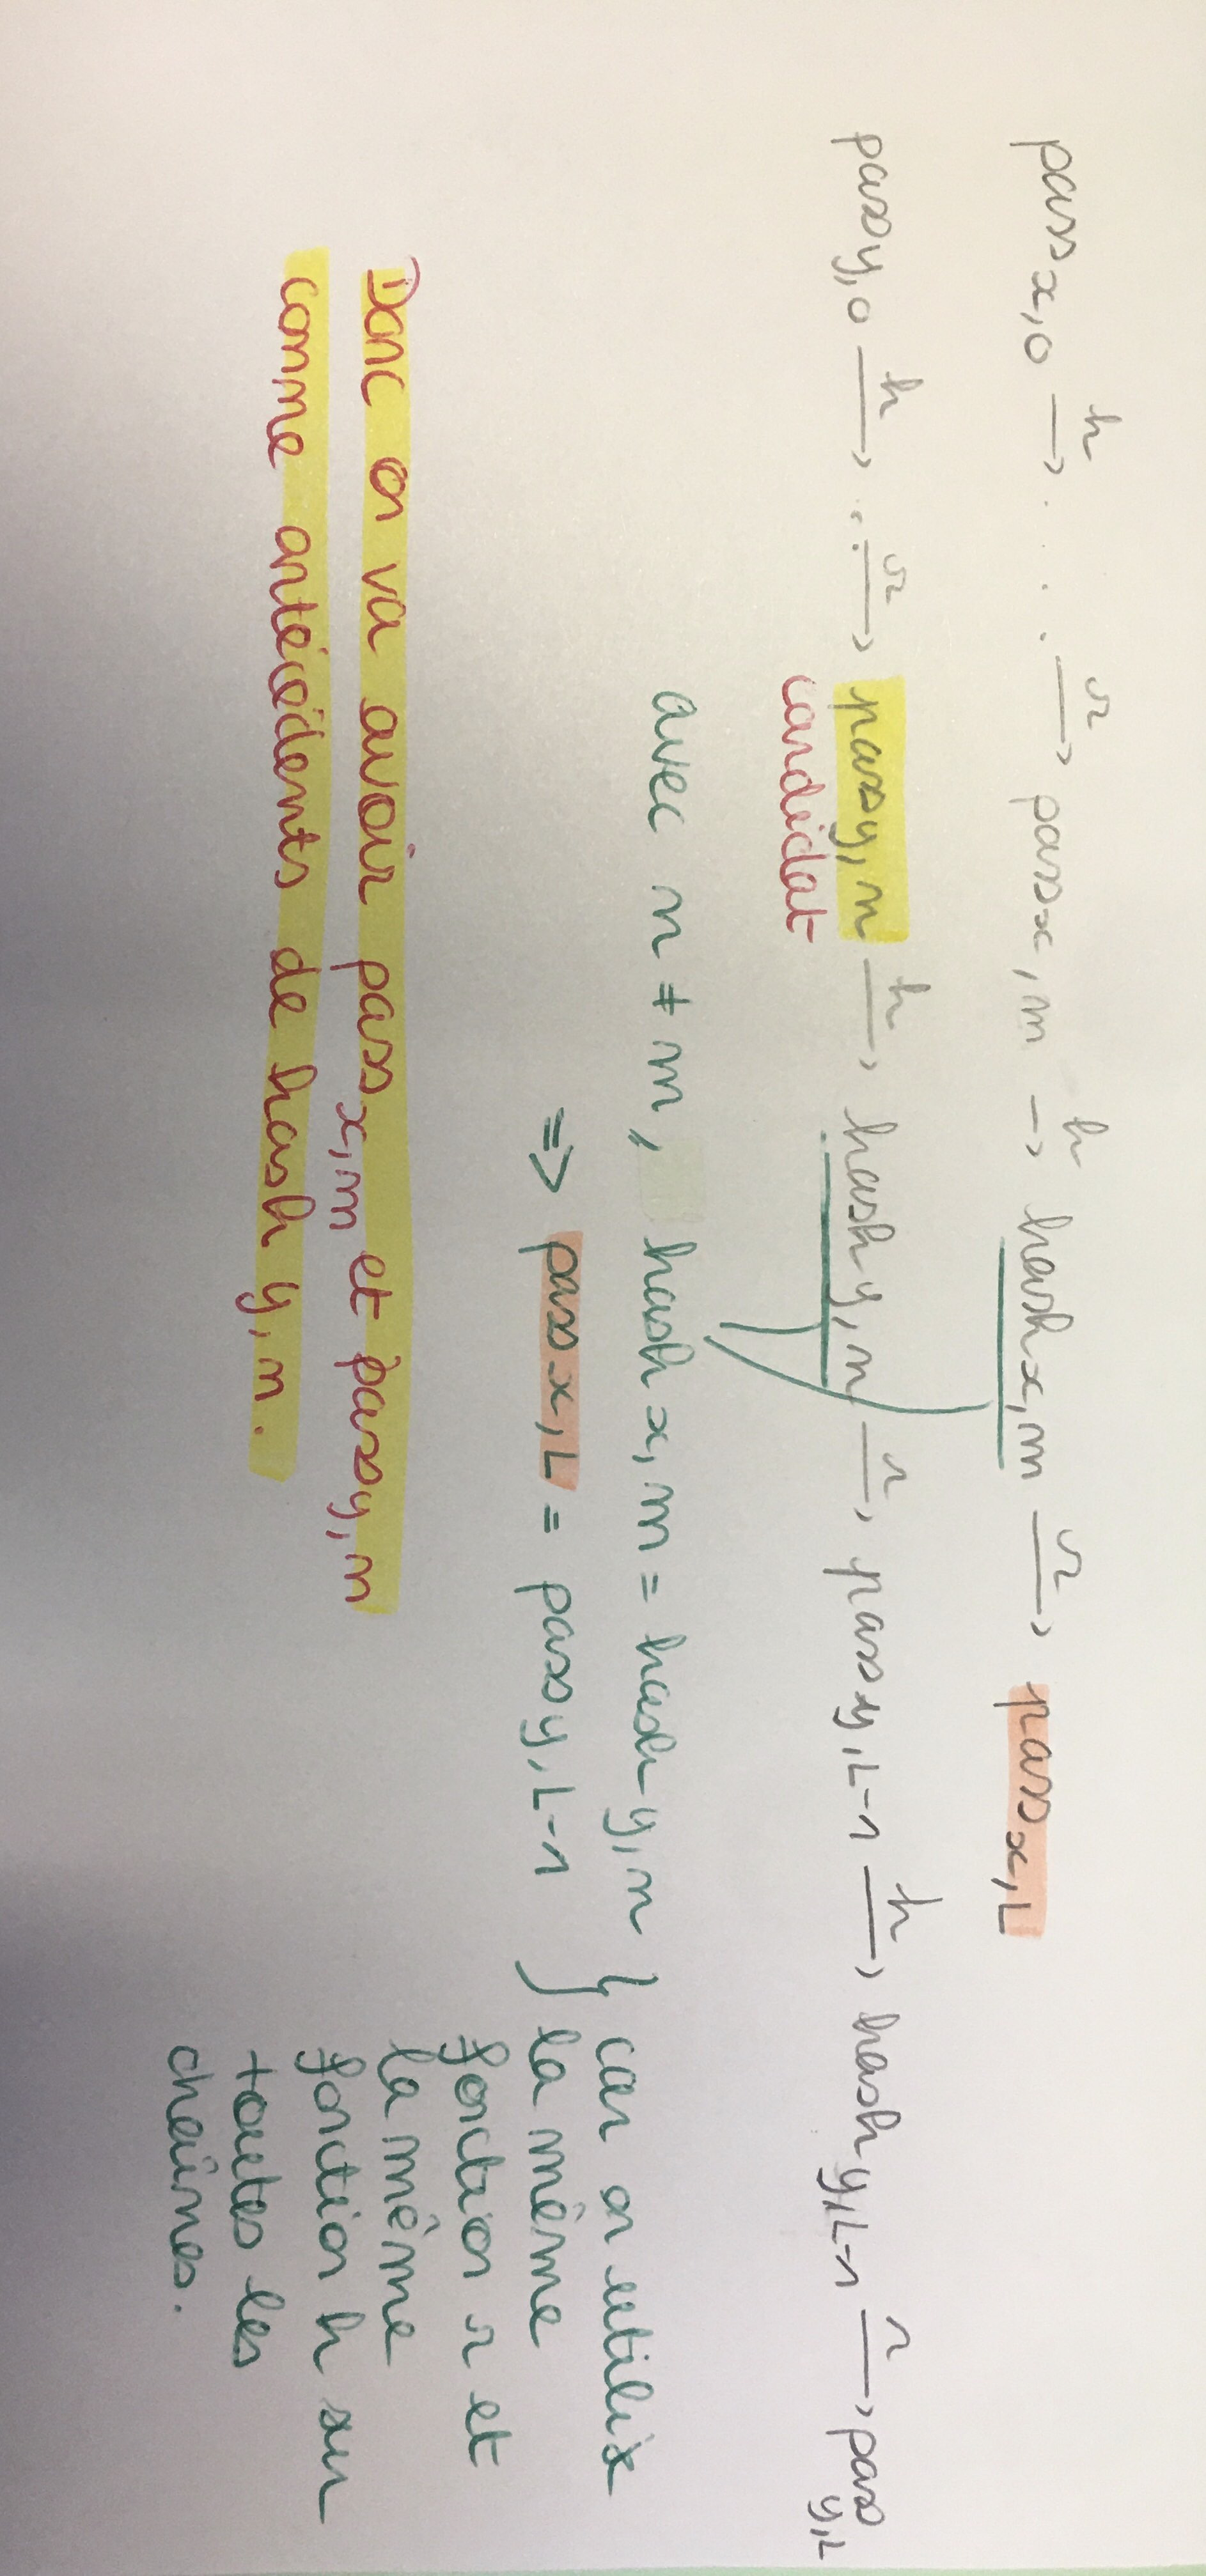 pass x,0 h→ .... r→ pass x,m h→ hash x,m r→ pass x,L
pass y,0 h→ ... r→ pass y,n h→ hash y,n r→ pass y,L-1 h→ hash y,L-1 r→ pass y,L
candidat
avec n ≠ m, hash x,m = hash y,n
=> pass x,L = pass y,L-1
} car on utilise
la même
fonction r et
la même
fonction h sur
toutes les
chaînes.
Donc on va avoir pass x,m et pass y,n
comme antécédents de hash y,n.